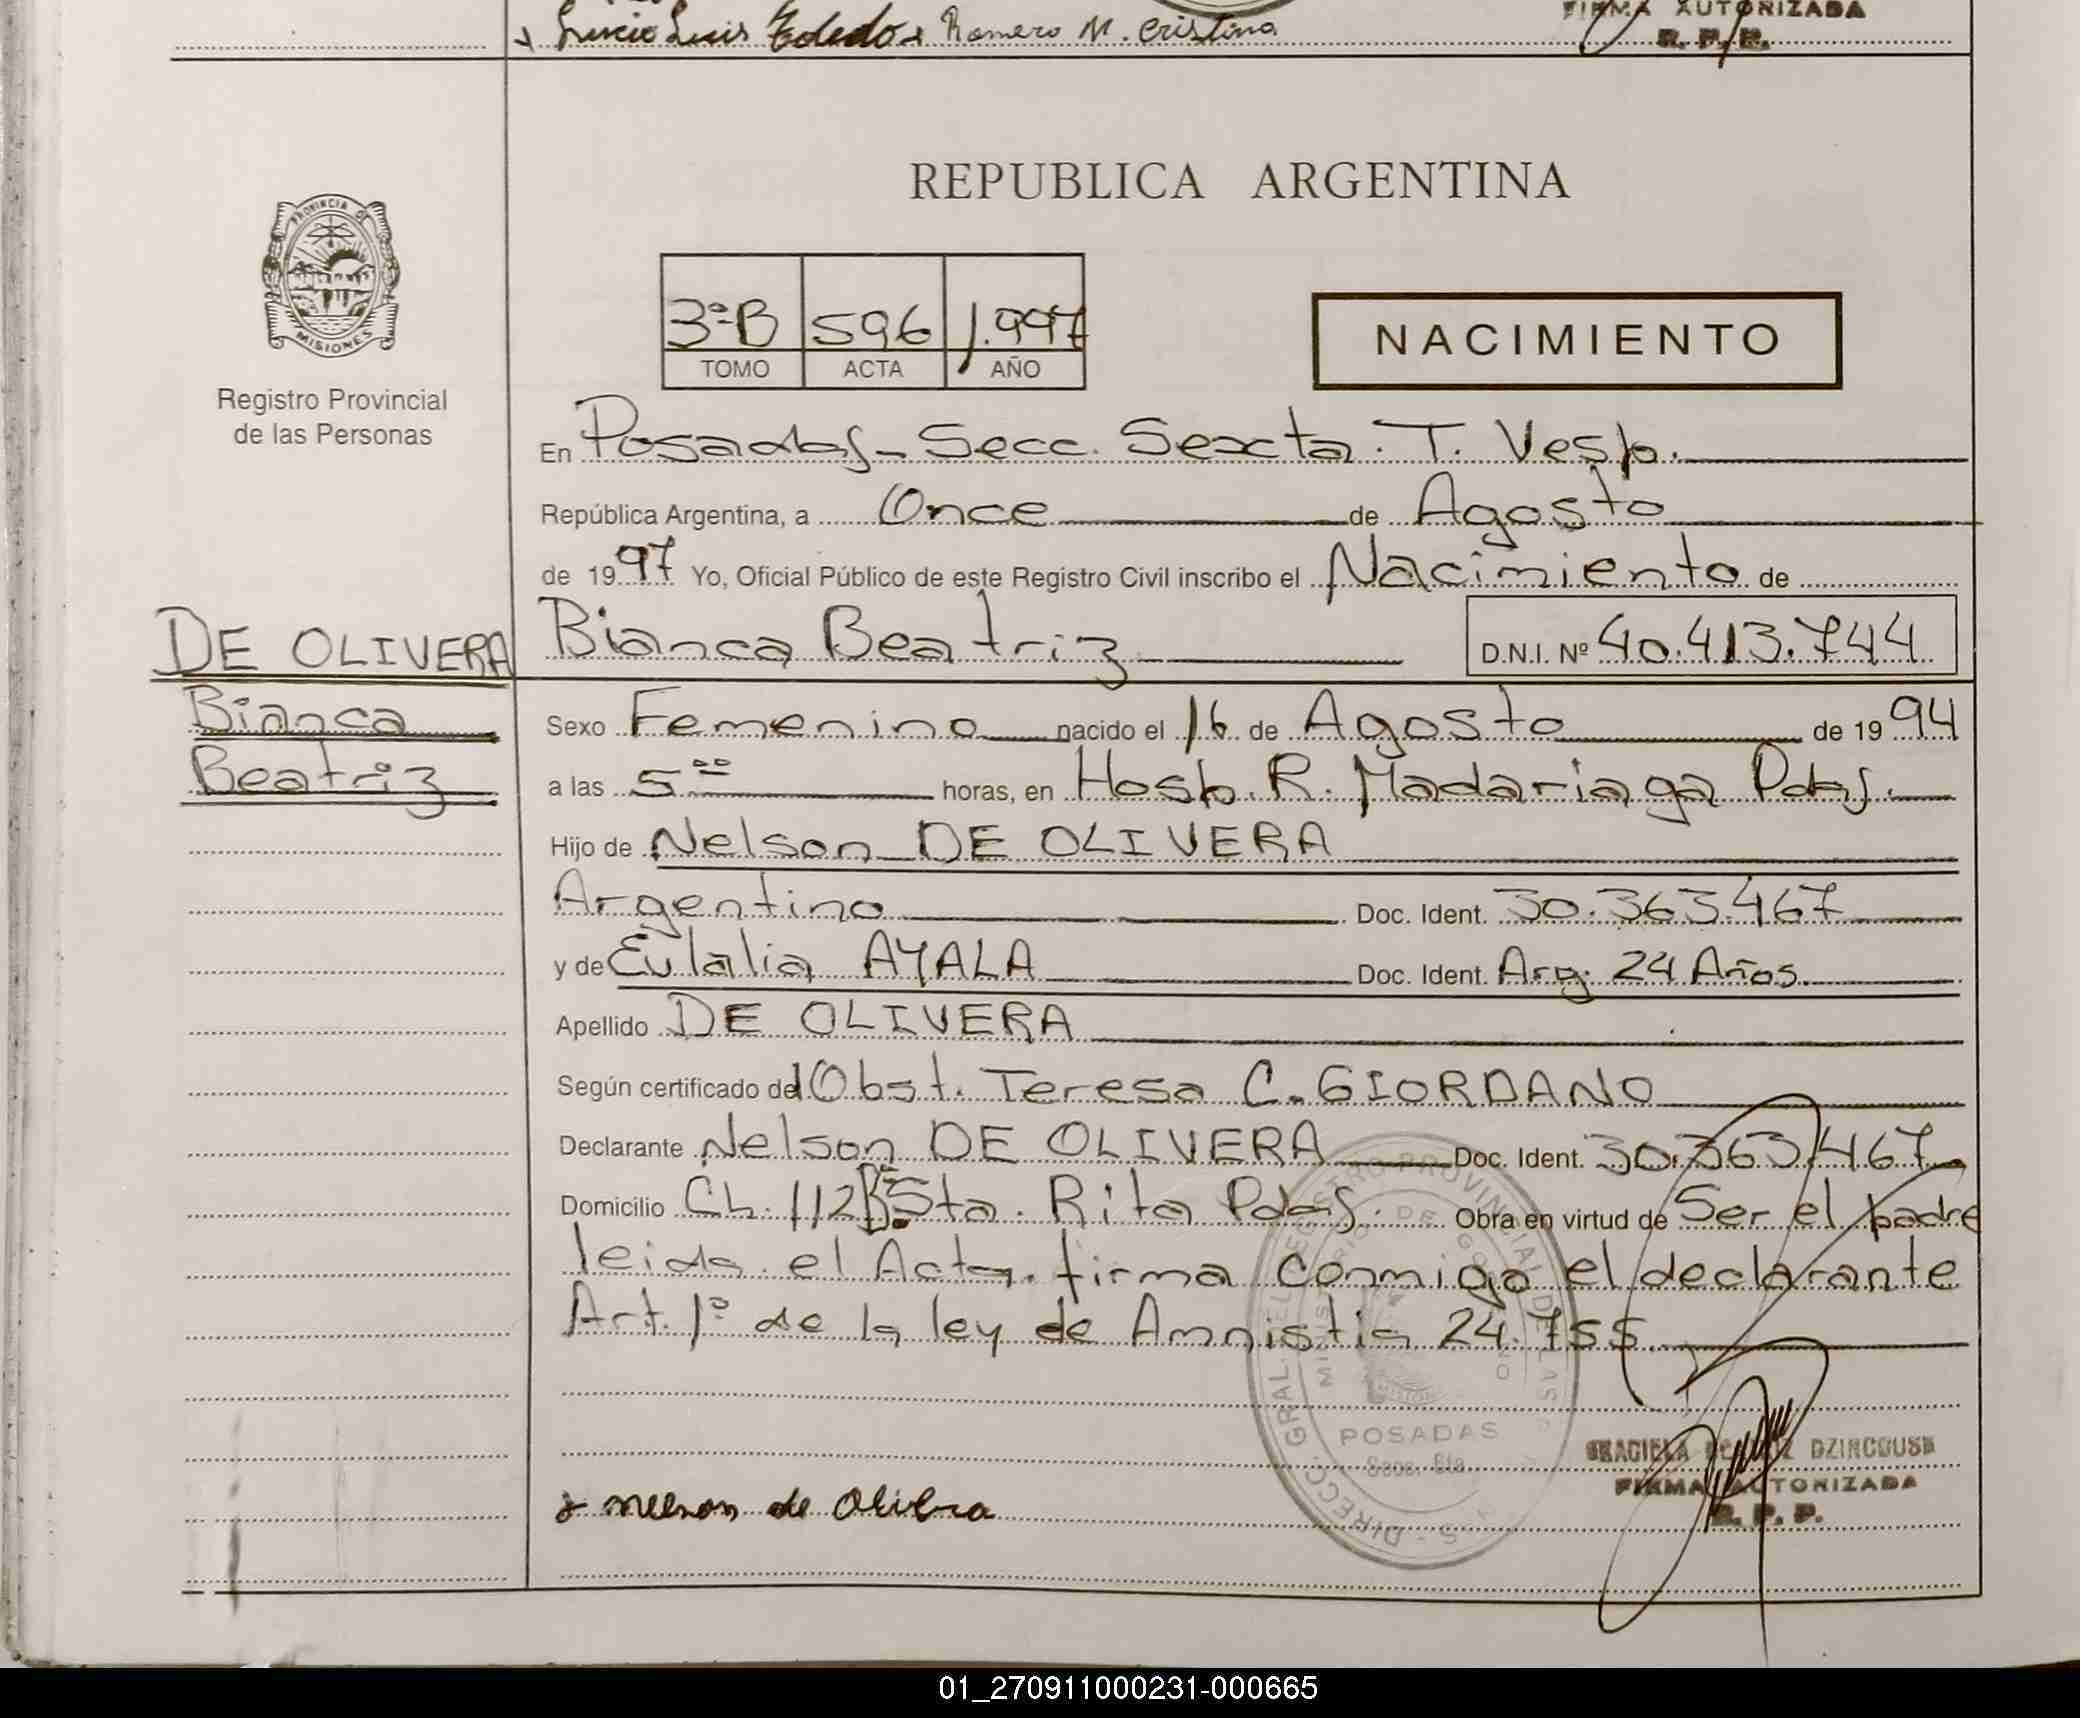 Lucio Luis Toledo Romero M. Cristina
FIRMA AUTORIZADA
R. P. P.
PROVINCIA DE
MISIONES
Registro Provincial
de las Personas
REPUBLICA ARGENTINA
3ª B 596 1.997
TOMO ACTA AÑO
NACIMIENTO
En Posadas - Secc. Sexta. T. Vesp.
República Argentina, a Once de Agosto
de 1997 Yo, Oficial Público de este Registro Civil inscribo el Nacimiento de
DE OLIVERA
Bianca
Beatriz
Bianca Beatriz D.N.I. Nº 40.413.744
Sexo Femenino nacido el 16 de Agosto de 1994
a las 5 00 horas, en Hosp. R. Madariaga Pdas.
Hijo de Nelson DE OLIVERA
Argentino Doc. Ident. 30.363.467
y de Eulalia AYALA Doc. Ident. Arg. 24 Años
Apellido DE OLIVERA
Según certificado del Obst. Teresa C. GIORDANO
Declarante Nelson DE OLIVERA Doc. Ident. 30.363.467
Domicilio Ch. 112 Bº Sta. Rita Pdas. Obra en virtud de Ser el padre
leida el Acta, firma conmigo el declarante
Art. 1º de la ley de Amnistia 24.755
POSADAS
Secc. 6ta
GRACIELA DZINCOUSK
FIRMA AUTORIZADA
R. P. P.
nelson de Olibera
01_270911000231-000665